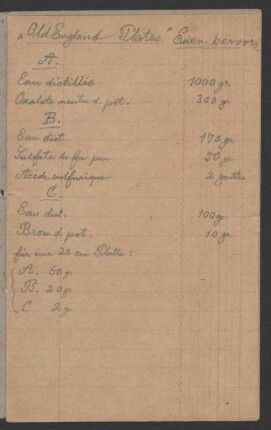 „Old England Plates" Eisen-hervorr.
A.
Eau distillée 1000 gr.
Oxalate neutre d. pot. 300 gr.
B.
Eau dist. 170 gr.
Sulfate de fer pur 50 gr.
Acide sulfurique 2 gouttes
C.
Eau dist. 100 gr.
Brom d. pot. 10 gr.
für eine 20 cm Platte:
A. 60 gr
B. 20 gr
C 2 gr